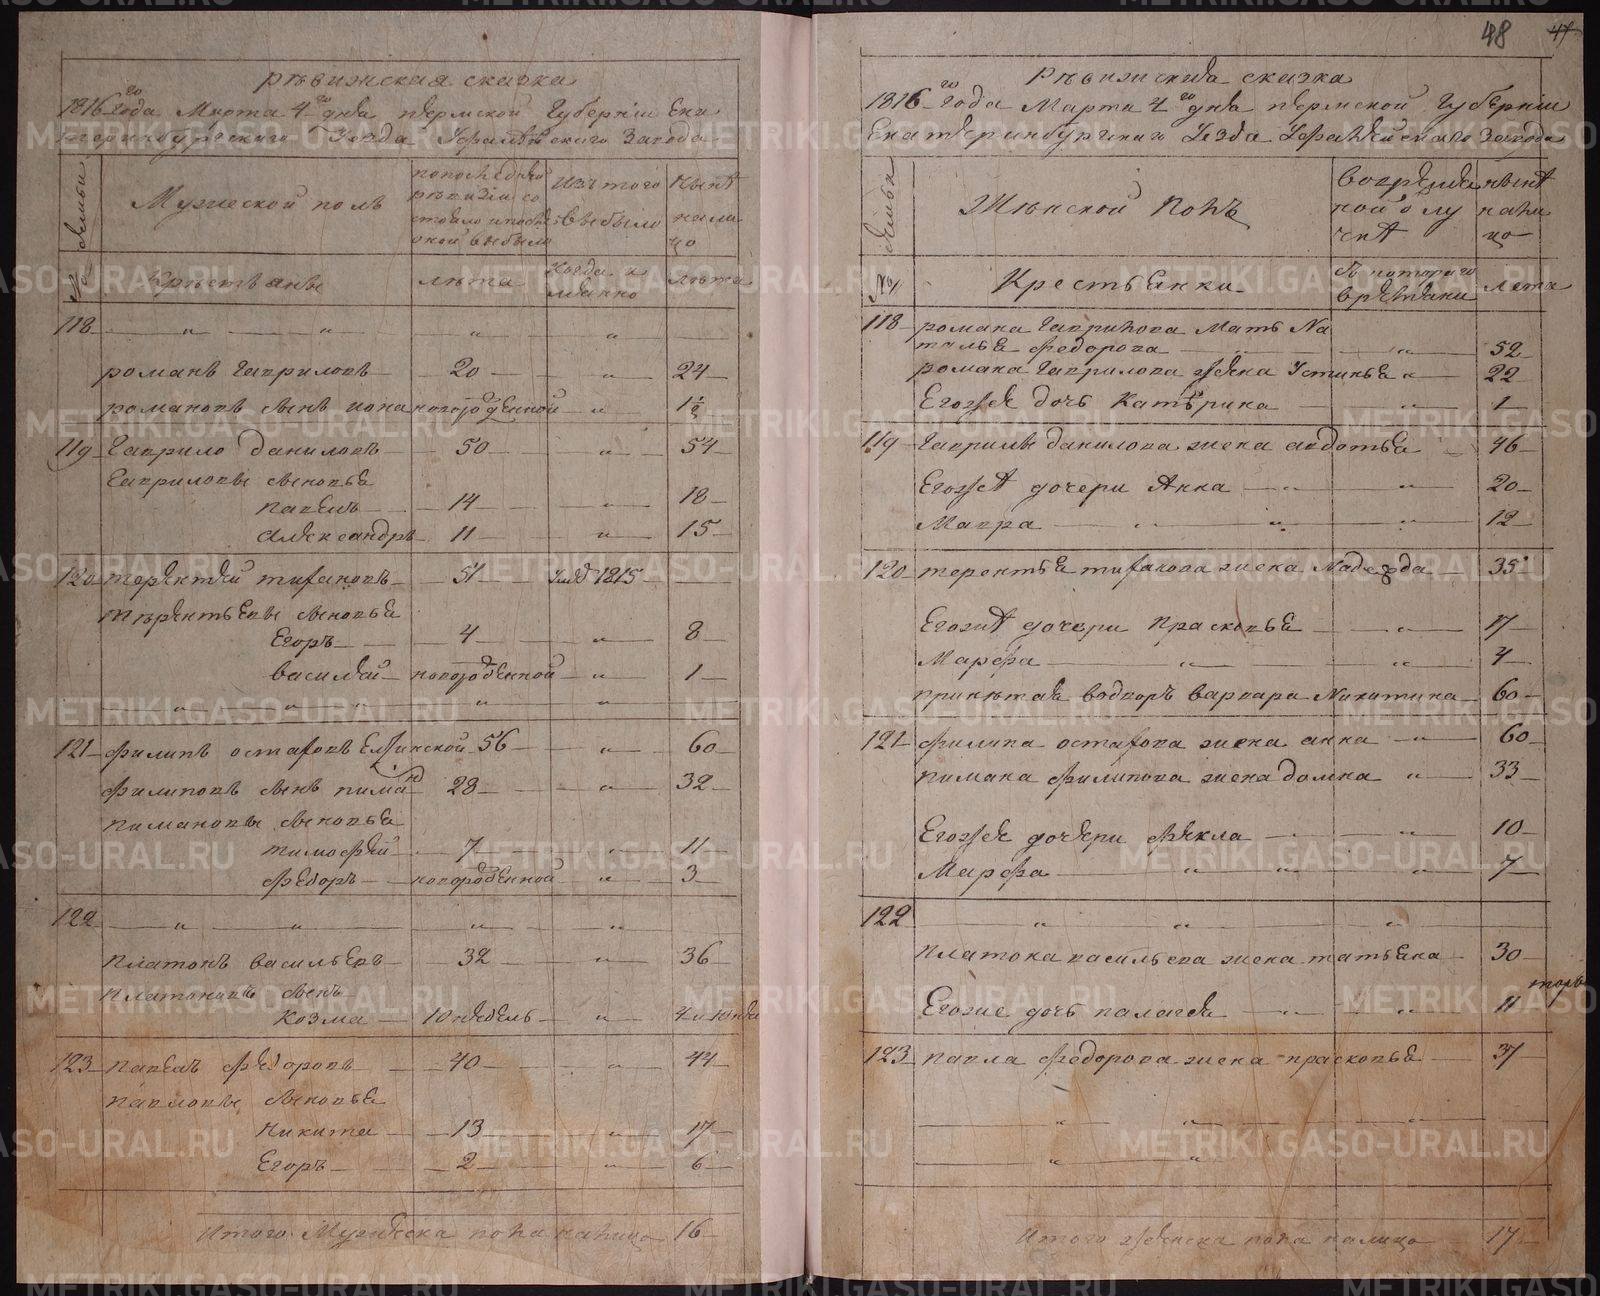 рѣвижская сказка
1816 го года Марта 4 го дня пермской Губернiи Ека
теринбургского Уезда Уфалѣйского Завода
№ семьи
Мужеской полъ
по последней
рѣвизiи со
стояло и после
оной выбыло
Изъ того
выбыло
нынѣ
нали
цо
Крѣстьянѣ
лѣта
Когда и
лѣта
118
романъ Гавриловъ 20 24
романовъ сынъ иона новорожденной 1½
119 Гаврило даниловъ 50 54
Гавриловы сыновья
павелъ 14 18
Александръ 11 15
120 терентей тифановъ 51 Умѣ 1815
тѣрентьевы сыновья
Егоръ 4 8
василей новорожденной 1
121 филипъ остафовъ 56 60
филиповъ сынъ пиманъ 28 32
пимановы сыновья
тимофей 7 11
федоръ новорожденной 3
122
платонъ васильевъ 32 36
платоновъ сынъ
козма 10 недель 4 и 10 неде
123 павелъ федоровъ 40 44
павловы сыновья
никита 13 17
Егоръ 2 6
Итого Мужеска пола налицо 16
48 47
рѣвижская сказка
1816 го года Марта 4 го дня пермской Губернiи
Екатеринбургскаго Уезда Уфалейскаго Завода
№ семьи
Жѣнской полъ
во времен
ной отлу
чкѣ
нынѣ
нали
цо
Крестьянки
съ котораго
врѣмени
лета
118 романа Гаврилова Мать На
талья Федорова 52
романа Гаврилова жена Устинья 22
Егоже дочь Катѣрина 1
119 Гаврилы данилова жена авдотья 46
Егоже дочери Анна 20
Мавра 12
120 терентья тифанова жена Надежда 35
Егоже дочери Прасковья 17
Марфа 4
принетая водворъ варвара Никитина 60
121 филипа остафова жена анна 60
пимана филипова жена домна 33
Егоже дочери фекла 10
Марфа 7
122
платона васильева жена татьяна 30
Егоже дочь палагея 11
123 павла федорова жена прасковья 37
Итого женска пола налицо 17
METRIKI.GASO-URAL.RU